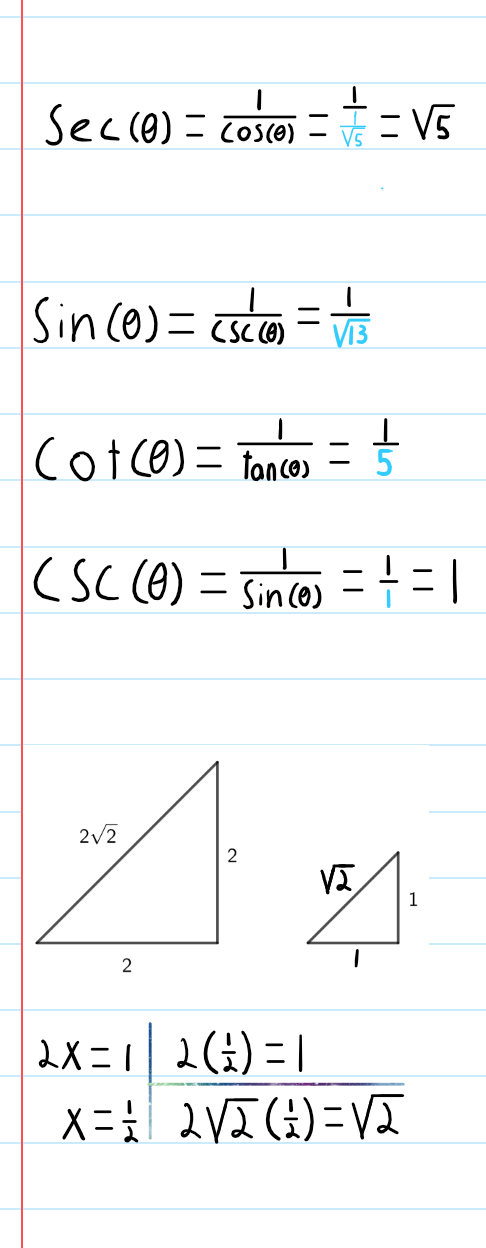 Sec(θ) = 1/cos(θ) = 1/(1/√5) = √5
Sin(θ) = 1/csc(θ) = 1/√13
Cot(θ) = 1/tan(θ) = 1/5
CSC(θ) = 1/Sin(θ) = 1/1 = 1
2√2
2
2
√2
1
1
2x = 1
2(1/2) = 1
x = 1/2
2√2(1/2) = √2